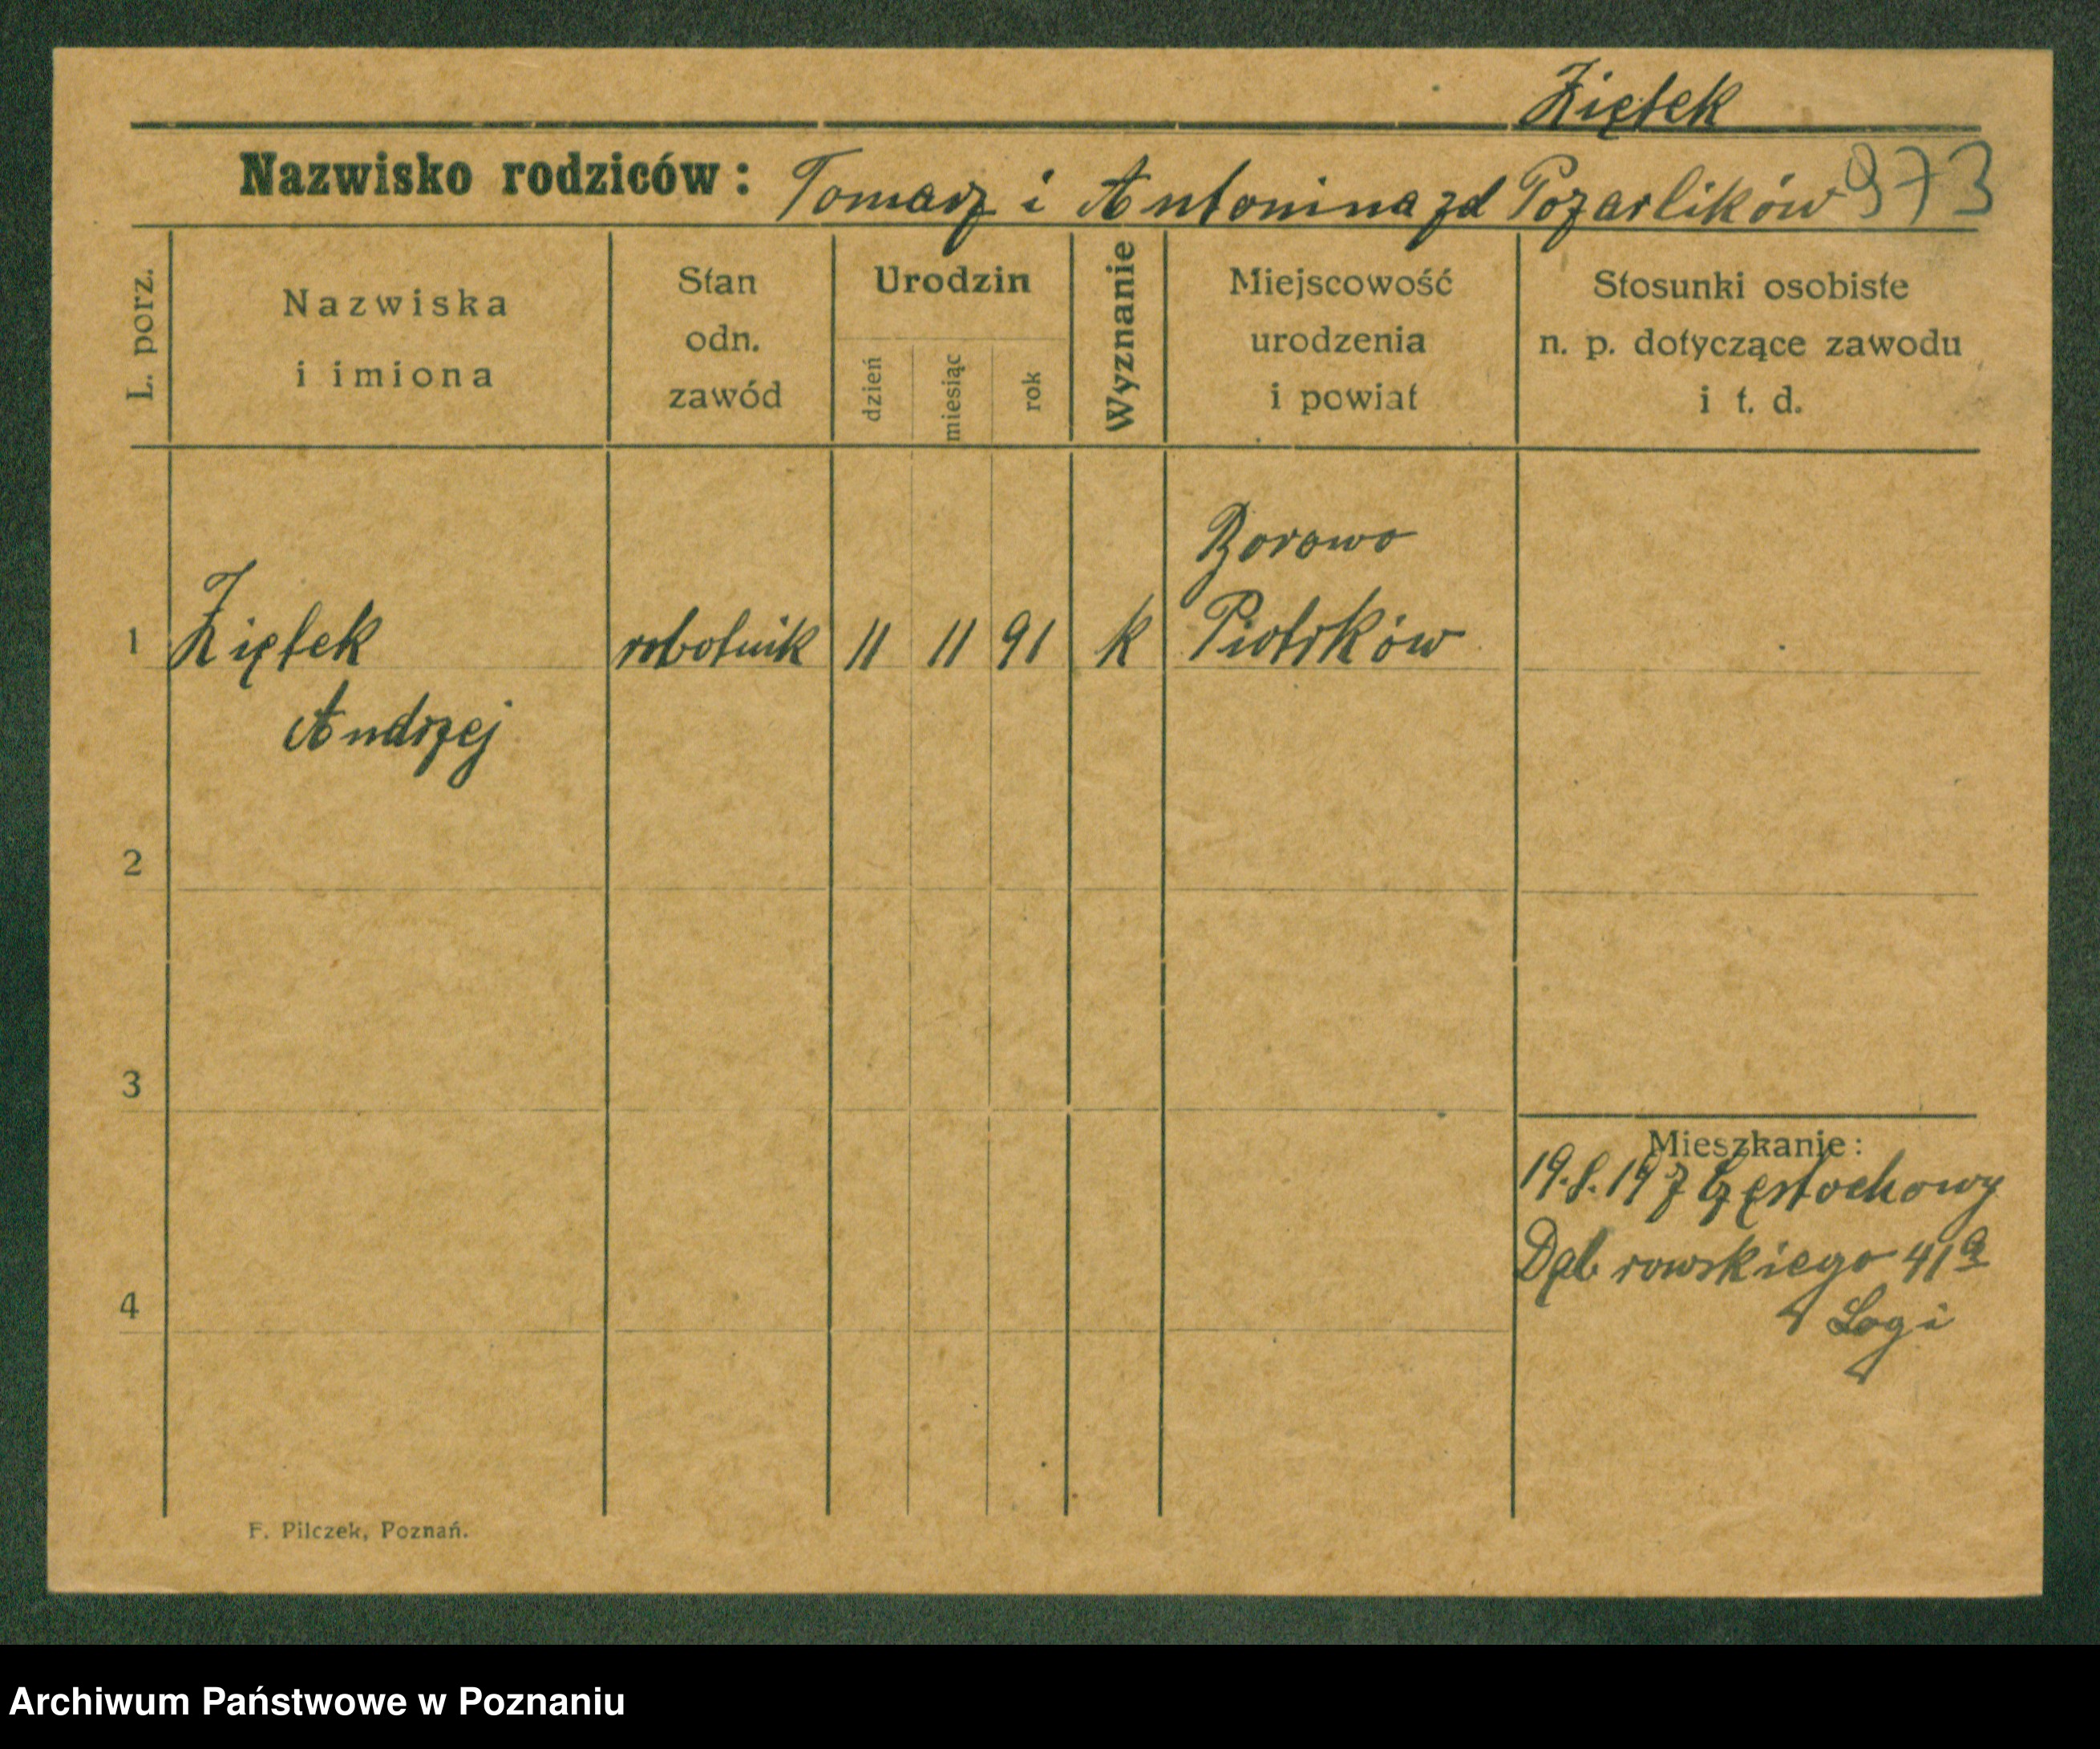 Ziętek
Nazwisko rodziców: Tomasz i Antonina zd Pozarlików 973
L. porz.
Nazwiska
i imiona
Stan
odn.
zawód
Urodzin
dzień
miesiąc
rok
Wyznanie
Miejscowość
urodzenia
i powiat
Stosunki osobiste
n. p. dotyczące zawodu
i t. d.
Borowo
1 Ziętek robotnik 11 11 91 k Piotrków
Andrzej
2
3
Mieszkanie:
19.8.19 z Częstochowy
Dąbrowskiego 41a
4
Logi
F. Pilczek, Poznań.
Archiwum Państwowe w Poznaniu